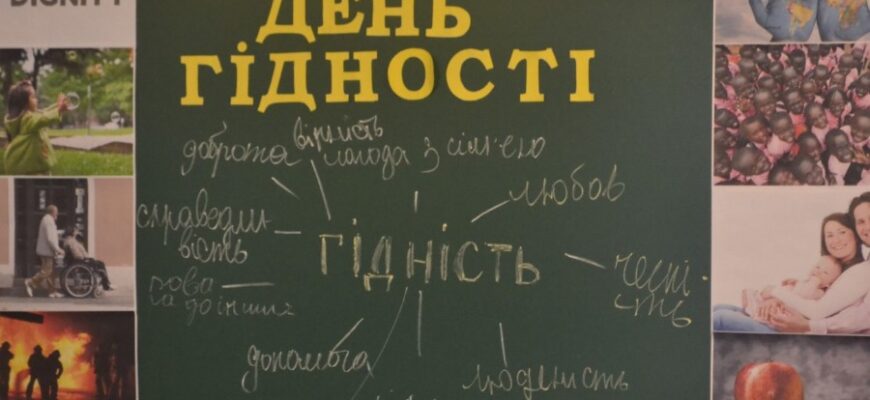 DIGNITY
ДЕНЬ
ГІДНОСТІ
вірність
доброта злагода з сім'єю
любов
справедли
вість
ГІДНІСТЬ
чесні-
сть
пова
га до інших
допомога
людяність